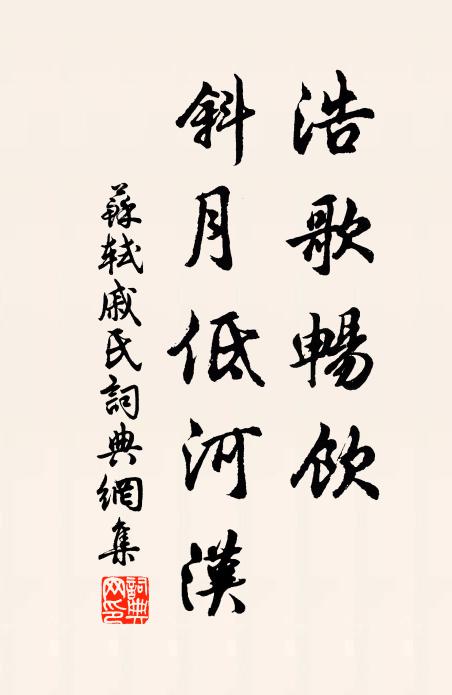 浩歌暢飲
斜月低河漢
蘇軾戚氏詞典網集
詞典网印